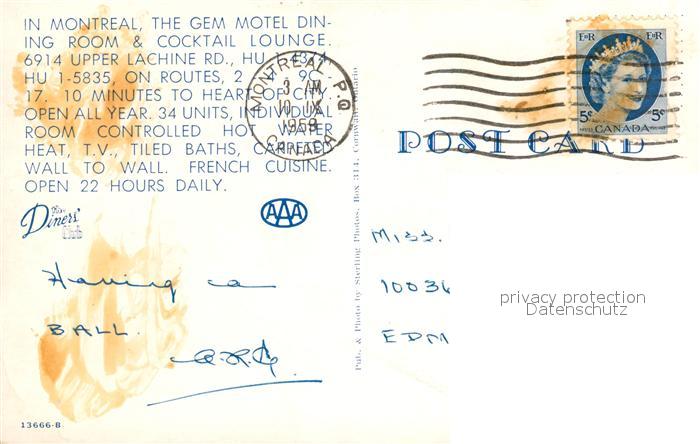 IN MONTREAL, THE GEM MOTEL DIN-
ING ROOM & COCKTAIL LOUNGE.
6914 UPPER LACHINE RD., HU
HU 1-5835, ON ROUTES, 2
17. 10 MINUTES TO HEART OF CITY.
OPEN ALL YEAR. 34 UNITS, INDIVIDUAL
ROOM CONTROLLED HOT WATER
HEAT, T.V., TILED BATHS, CARPETED
WALL TO WALL. FRENCH CUISINE.
OPEN 22 HOURS DAILY.
The Diners' Club
AAA
Having a
BALL.
13666-B
Pub. & Photo by Sterling Photos, Box 314, Cornwall, Ontario
MONTREAL P.Q.
3 AM
10 IX
CANADA
EIIR EIIR
5c 5c
CANADA
POST CARD
Miss.
10036
EDM
privacy protection
Datenschutz